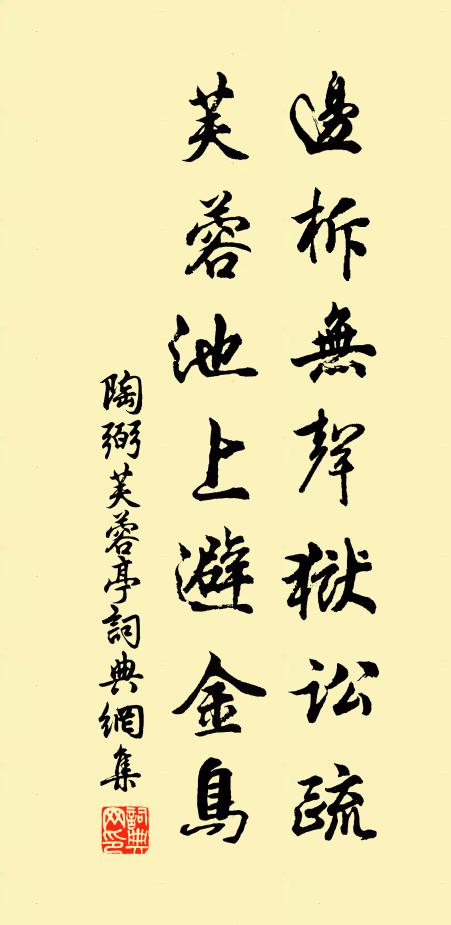 邊柝無聲獄訟疏
芙蓉池上避金烏
陶弼芙蓉亭詞典網集
詞典網印